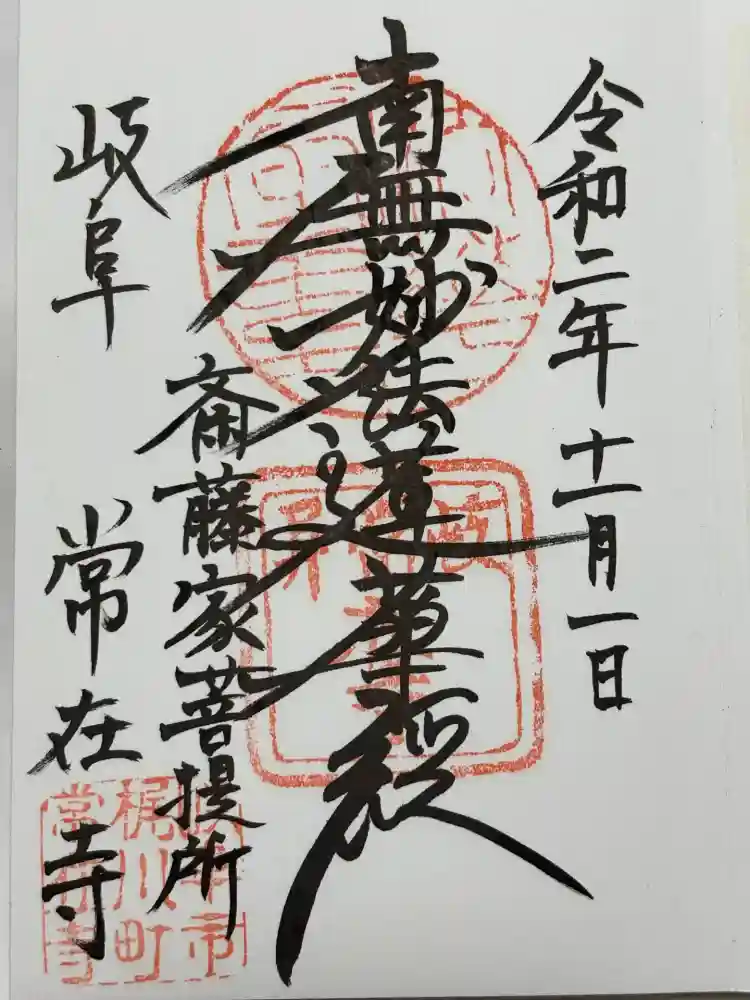 令和二年十一月一日
南無妙法蓮華経
斎藤家菩提所
岐阜 常在寺
岐阜市
梶川町
常在寺